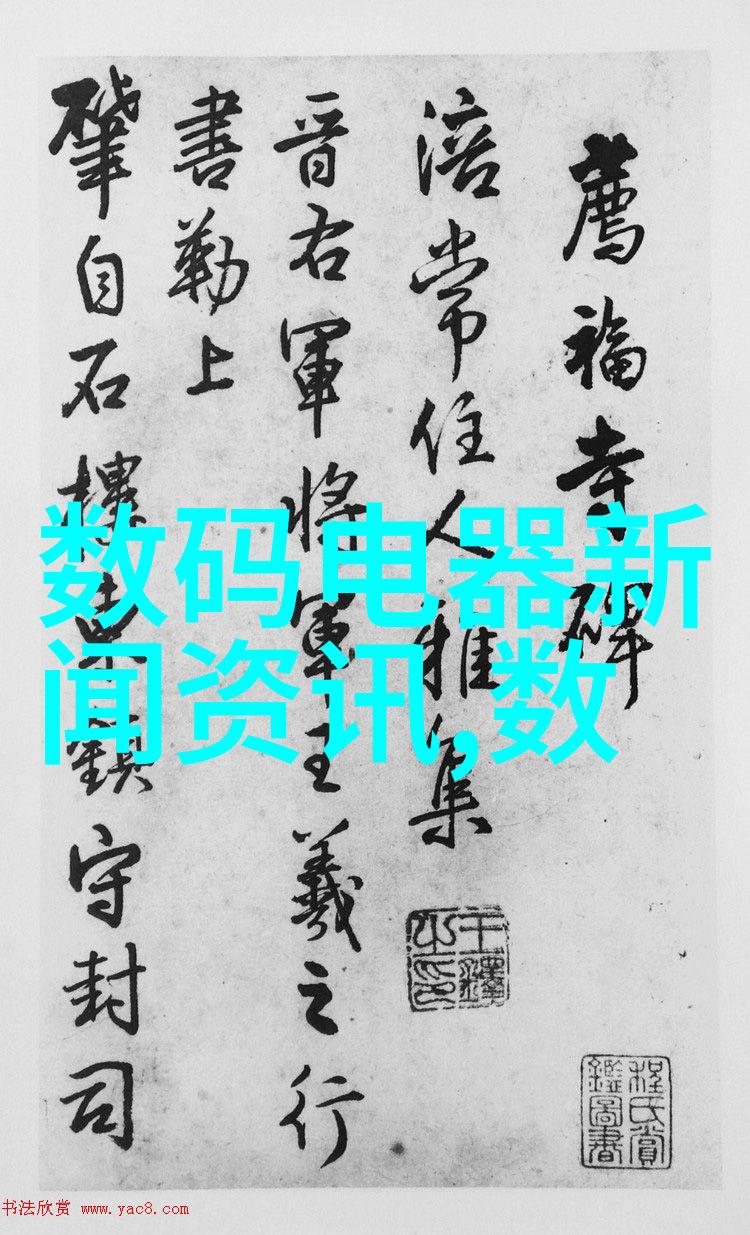 薦福寺碑
涪常住人雅集
晉右軍將軍王羲之行
書勒上
肇自石樓鎮守封司
数码电器新
闻资讯,数
王鐸之印
程氏賞鑑圖書
书法欣赏 www.yac8.com